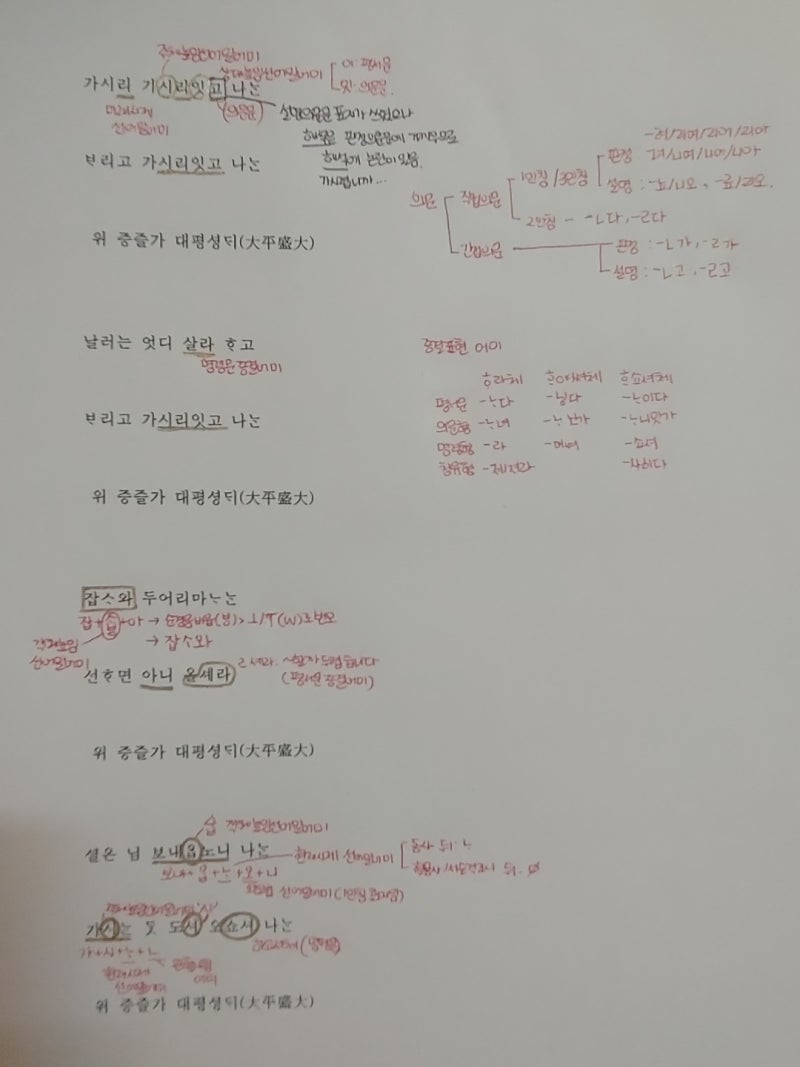 주체높임선어말어미
상대높임선어말어미
이 평서문
잇 의문문.
가시리 가시리잇고 나ᄂᆞᆫ
미래시제
선어말어미
(의문문)
설명의문문 표지가 쓰였으나
해석은 판정의문문에 가까우므로
해석에 논란이 있음.
가시렵니까...
ᄇᆞ리고 가시리잇고 나ᄂᆞᆫ
의문
직접의문
1인칭/3인칭
판정
-녀/니여/니여/니아
-려/리여/리여/리아
설명 : -뇨/니오, -료/리오.
2인칭 - -ㄴ다, -ㄹ다
간접의문
판정 : -ㄴ가, -ㄹ가
설명 : -ㄴ고, -ㄹ고
위 증즐가 대평셩ᄃᆡ(大平盛大)
날러는 엇디 살라 ᄒᆞ고
명령문 종결어미
종결표현 어미
ᄒᆞ라체 ᄒᆞ야쎠체 ᄒᆞ쇼셔체
평서문 -ᄂᆞ다 -닝다 -ᄂᆞ이다
의문형 -ᄂᆞ녀 -ᄂᆞ닛가 -ᄂᆞ니잇가
명령형 -라 -쇼셔
청유형 -져라 -사이다
ᄇᆞ리고 가시리잇고 나ᄂᆞᆫ
위 증즐가 대평셩ᄃᆡ(大平盛大)
잡ᄉᆞ와 두어리마ᄂᆞᄂᆞᆫ
잡+ᄉᆞᆸ+아 → 순경음비읍(ㅸ)>ㅗ/ㅜ(w)로 변모
→ 잡ᄉᆞ와
객체높임
선어말어미
선ᄒᆞ면 아니 올셰라
ㄹ셰라: ~할까 두렵습니다
(평서문 종결어미)
위 증즐가 대평셩ᄃᆡ(大平盛大)
객체높임선어말어미
셜온 님 보내ᄋᆞᆸ노니 나ᄂᆞᆫ
현재시제 선어말어미
동사 뒤: ᄂᆞ
형용사/서술격조사 뒤: ∅
보내+ᄋᆞᆸ+ᄂᆞ+오+니
선어말어미(1인칭 화자)
주체높임선어말어미 '시'
가시ᄂᆞᆫ ᄃᆞᆺ 도셔 오쇼셔 나ᄂᆞᆫ
가+시+ᄂᆞ+ㄴ
현재시제
선어말어미
관형사형
어미
(명령문)
위 증즐가 대평셩ᄃᆡ(大平盛大)